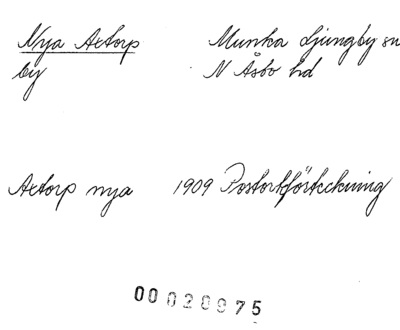 Nya Axtorp Munka Ljungby sn
by N Åsbo hd
Axtorp nya 1909 Postortförteckning
00028975